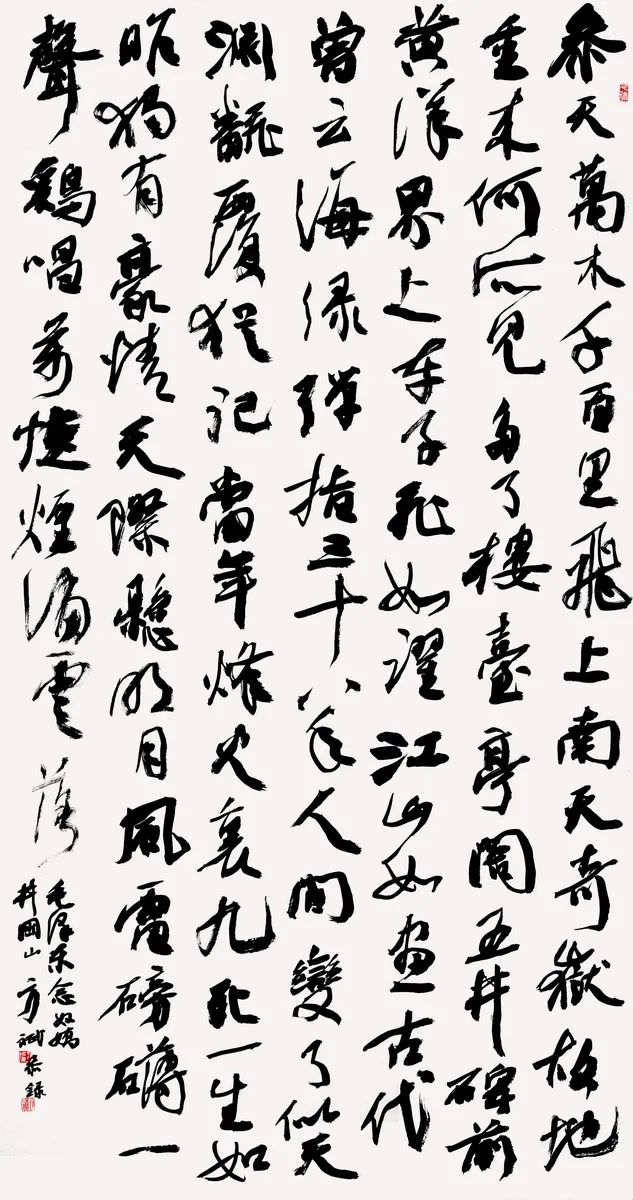 參天萬木千百里飛上南天奇嶽故地
重來何所見多了樓臺亭閣五井碑前
黃洋界上車子飛如躍江山如畫古代
曾云海绿彈指三十八年人間變了似天
淵飜覆猶記當年烽火裏九死一生如
昨獨有豪情天際懸明月風雷磅礴一
聲鷄唱萬怪煙消雲落
毛澤東念奴嬌
井岡山 方誠恭錄